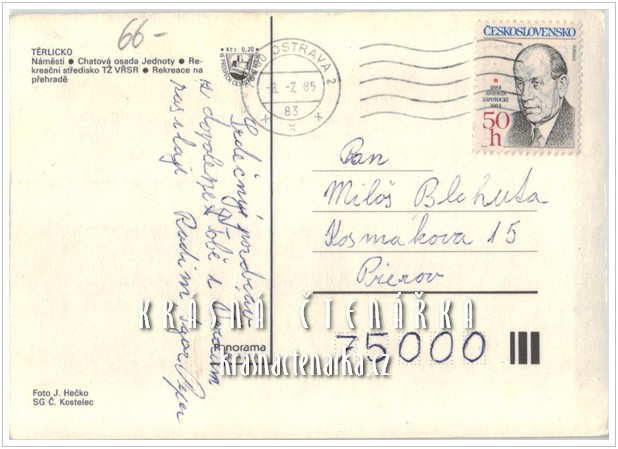 66-
TĚRLICKO
Náměstí ● Chatová osada Jednoty ● Re-
kreační středisko TŽ VŘSR ● Rekreace na
přehradě
Kčs 0,20
OSTRAVA 2
-7. 85
83
ČESKOSLOVENSKO
★
1884
ANTONÍN
ZÁPOTOCKÝ
1984
50
h
Srdečný pozdrav
z dovolené Tobě i
zasílají Radim, Igor
Pan
Miloš Blahuta
Kosmákova 15
Přerov
75000
KRÁSNÁ ČTENÁŘKA
krasnactenarka.cz
panorama
Foto J. Hečko
SG Č. Kostelec